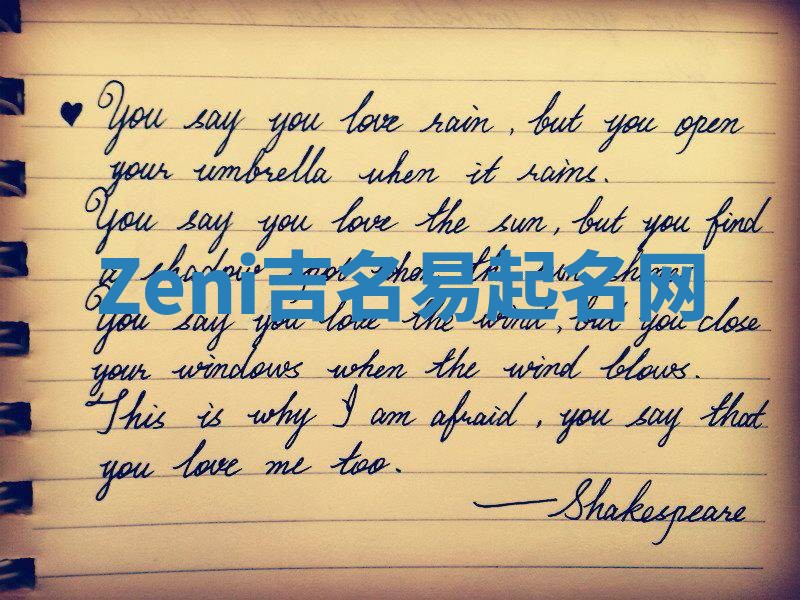 ♥ You say you love rain, but you open
your umbrella when it rains.
You say you love the sun, but you find
a shadow spot when the sun shines.
Zeni吉名易起名网
You say you love the wind, but you close
your windows when the wind blows.
This is why I am afraid, you say that
you love me too.
—Shakespeare